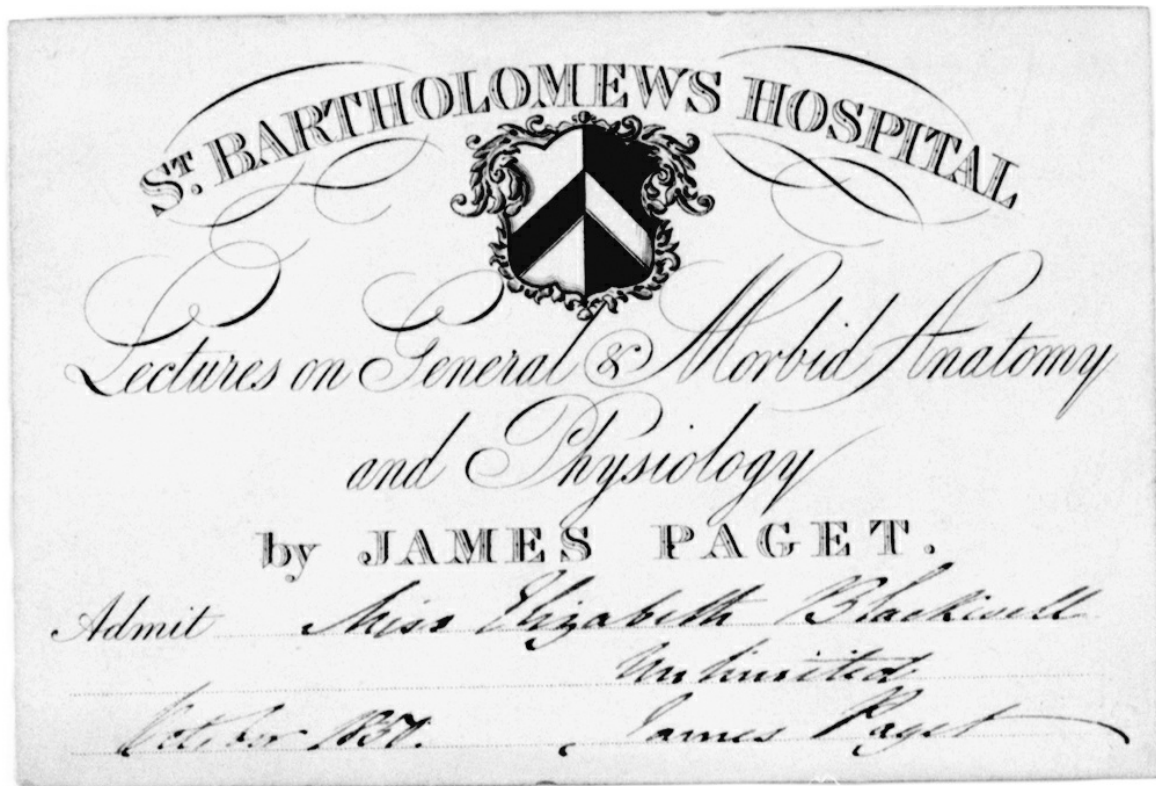 ST. BARTHOLOMEWS HOSPITAL
Lectures on General & Morbid Anatomy
and Physiology
by JAMES PAGET.
Admit Miss Elizabeth Blackwell
Unlimited
October 1850. James Paget